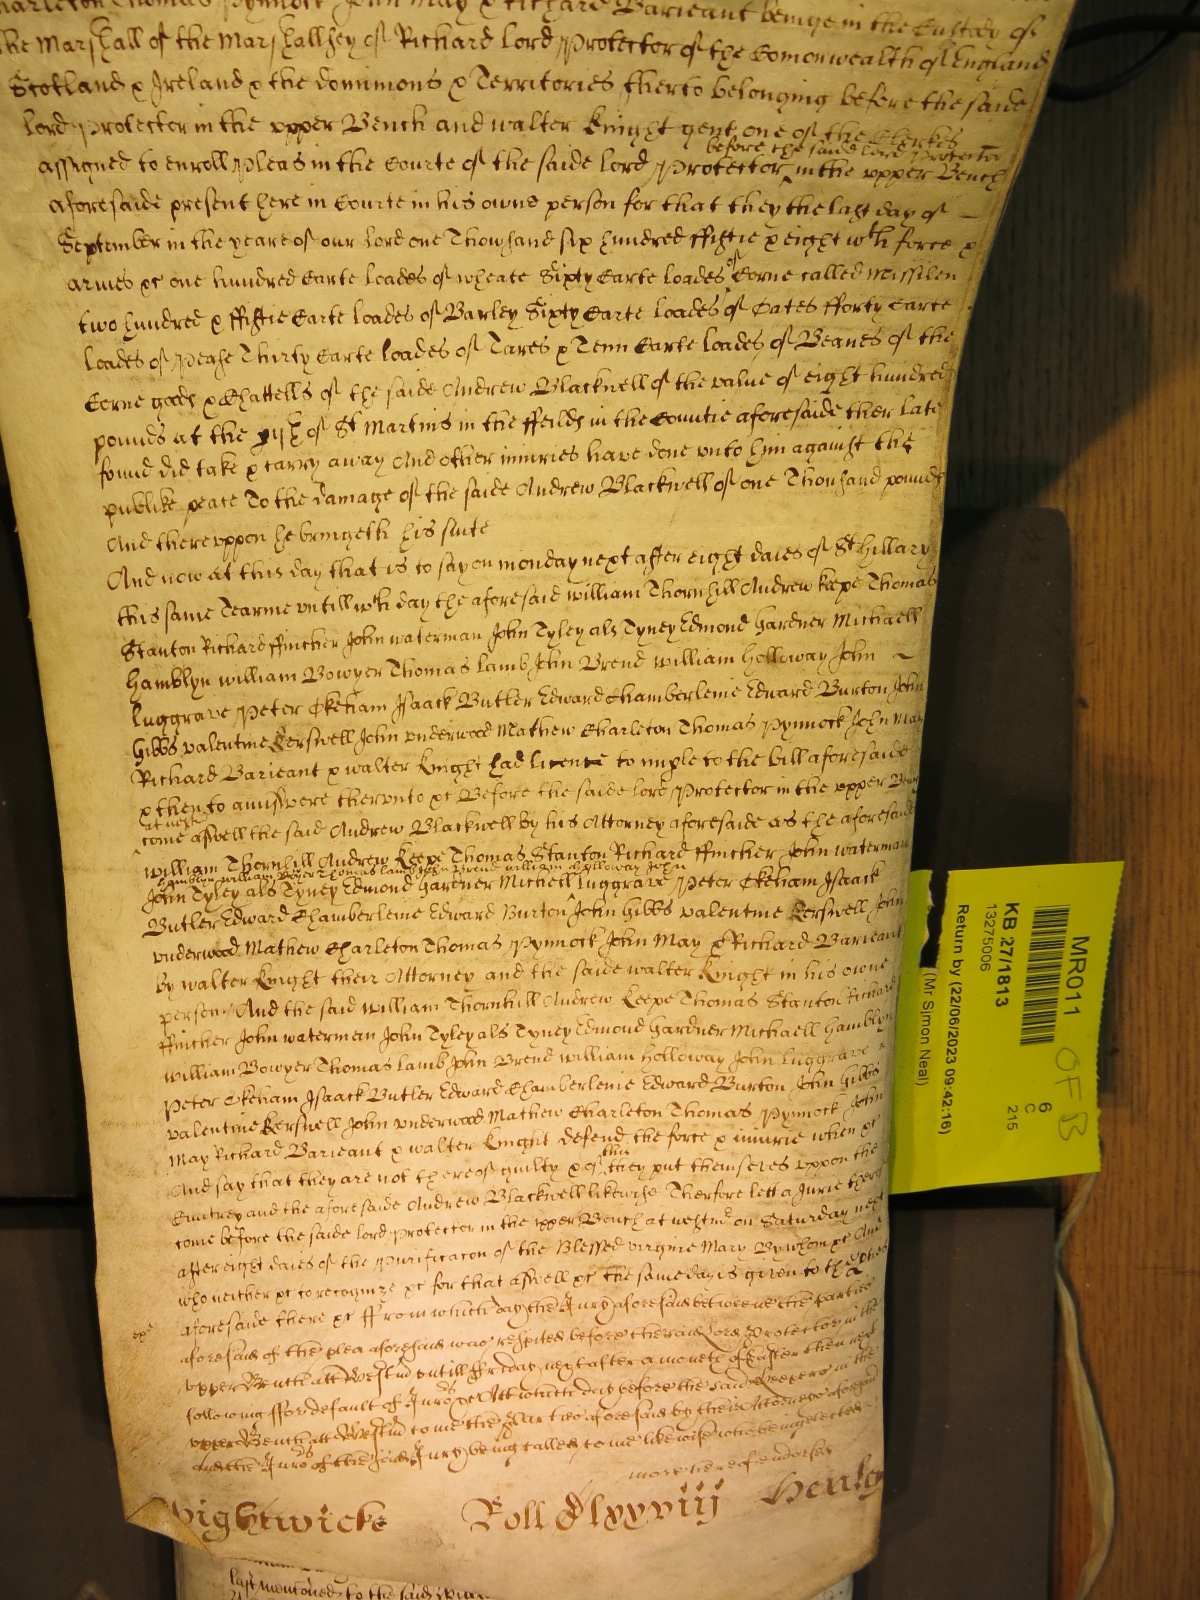 Charleton Thomas Pynnock John May & Richard Barieant beinge in the Custody of
the Marshall of the Marshallsey of Richard Lord Protector of the Comonwealth of England
Scotland & Ireland & the dominions & Territories therto belonging before the saide
Lord Protector in the upper Bench and Walter Knight gent one of the Clerkes
before the saide Lord Protector
assigned to enroll Pleas in the Courte of the saide Lord Protector in the upper Bench
aforesaide present here in Courte in his owne person for that they the last day of
September in the yeare of our Lord one Thowsand six hundred ffiftie & eight wth force &
armes &c one hundred Carte loades of wheate Sixty Carte loades of Corne called Messilen
two hundred & ffiftie Carte loades of Barley Sixty Carte loades of Oates fforty Carte
loades of Pease Thirty Carte loades of Tares & Tenn Carte loades of Beanes of the
Corne goods & Chattells of the saide Andrew Blacknell of the value of eight hundred
pounds at the of St Martins in the ffeilds in the Countie aforesaide ther late
found did take & carry away And other iniuries have done unto him against the
publike peace To the damage of the saide Andrew Blacknell of one Thousand pounds
And thereuppon he bringeth his suite
And now at this day that is to say on monday next after eight daies of St Hillary
this same Tearme untill wch day the aforesaid William Thornhill Andrew Keepe Thomas
Stanton Richard ffincher John Waterman John Tyley als Tyney Edmond Gardner Michaell
Hamblyn William Bowyer Thomas Lamb John Brend William Holloway John
Luggrave Peter Okeham Isaack Butler Edward Chamberleine Edward Burton John
Gibbs Valentine Kerswell John Underwood Mathew Charleton Thomas Pynnock John May
Richard Barieant & Walter Knight had licence to imple to the bill aforesaide
& then to aunswere therunto &c Before the saide Lord Protector in the upper Bench
at
come aswell the said Andrew Blacknell by his Attorney aforesaide as the aforesaide
William Thornhill Andrew Keepe Thomas Stanton Richard ffincher John Waterman
Hamblyn William Thomas Lamb John Brend William Holloway John
John Tyley als Tyney Edmond Gardner Michell Luggrave Peter Okeham Isaack
Butler Edward Chamberleine Edward Burton John Gibbs Valentine Kerswell John
Underwood Mathew Charleton Thomas Pynnock John May & Richard Barieant
by Walter Knight their Attorney and the saide Walter Knight in his owne
person And the said William Thornhill Andrew Keepe Thomas Stanton Richard
ffincher John Waterman John Tyley als Tyney Edmond Gardner Michaell Hamblyn
William Bowyer Thomas Lamb John Brend William Holloway John Luggrave
Peter Okeham Isaack Butler Edward Chamberleine Edward Burton John Gibbs
Valentine Kerswell John Underwood Mathew Charleton Thomas Pynnock John
May Richard Barieant & Walter Knight defend the force & iniurie when &c
And say that they are not thereof guilty & of this they put themselves uppon the
Cuntrey and the aforesaide Andrew Blacknell likewise Therfore lett a Jurie therof
come before the saide Lord Protector in the upper Bench at Westmr on Saturday next
after eight daies of the Purificacon of the Blessed Virgine Mary By whom &c And
who neither &c to recognize &c for that aswell &c the same day is given to the
aforesaide there &c ffrom which day the Jury aforesaid betweene the parties
aforesaid of the plea aforesaid was respited before the said Lord Protector in the
upper Bench att Westmr untill ffryday next after a moneth of Easter then next
following ffor default of Jurors &c Att which day before the said Keepers in the
upper Bench att Westmr come the parties aforesaid by their Attorneys aforesaid
And the Jurors of the said Jury being called come likewise
more hereof endorsed
Wightwicke Roll Dlxxviij Henley
last mentioned to the said
MR011
6
C
215
KB 27/1813
13275006
Return by (22/06/2023 09:42:16)
(Mr Simon Neal)
OFB